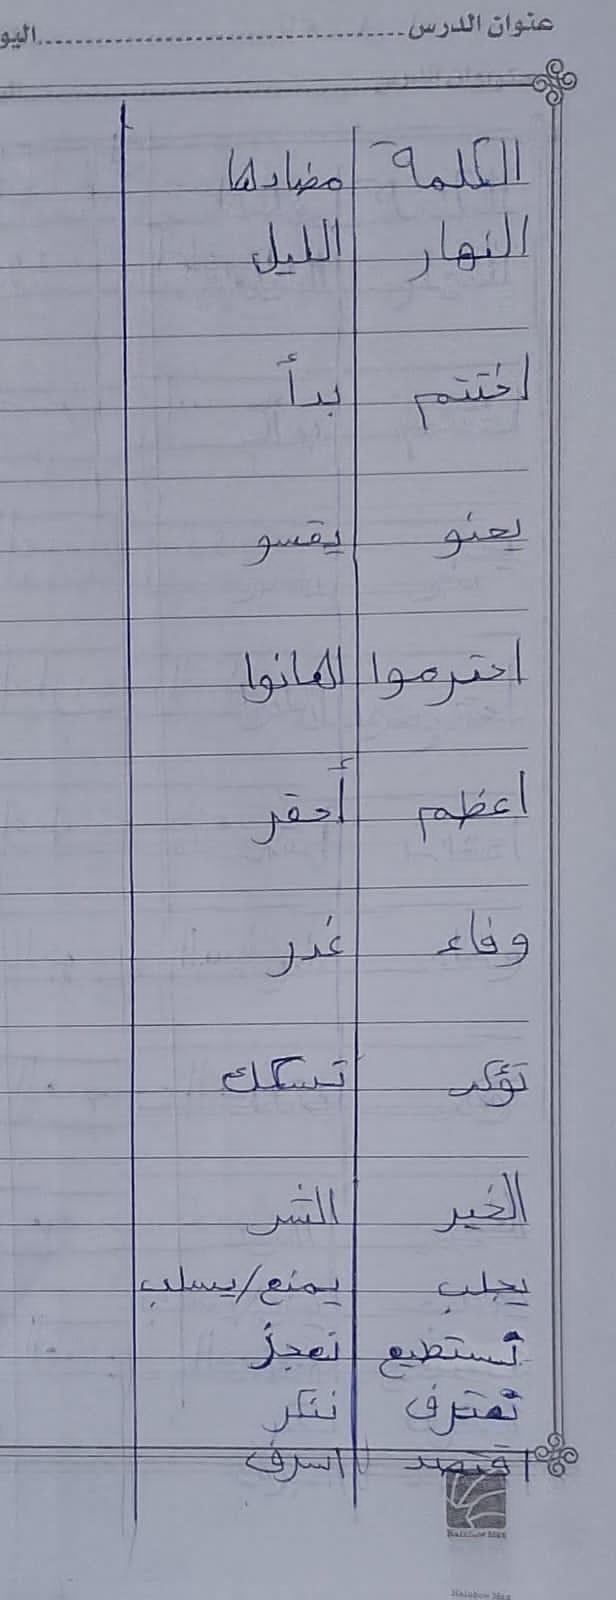 عنوان الدرس ........................................ اليو
الكلمة مضادها
النهار الليل
اختتم بدأ
يحنو يقسو
احترموا اهانوا
اعظم أحقر
وفاء غدر
تؤكد تشكك
الخير الشر
يجلب يمنع/يسلب
تستطيع تعجز
تعترف تنكر
اقتصد اسرف
Rainbow Max
Rainbow Max